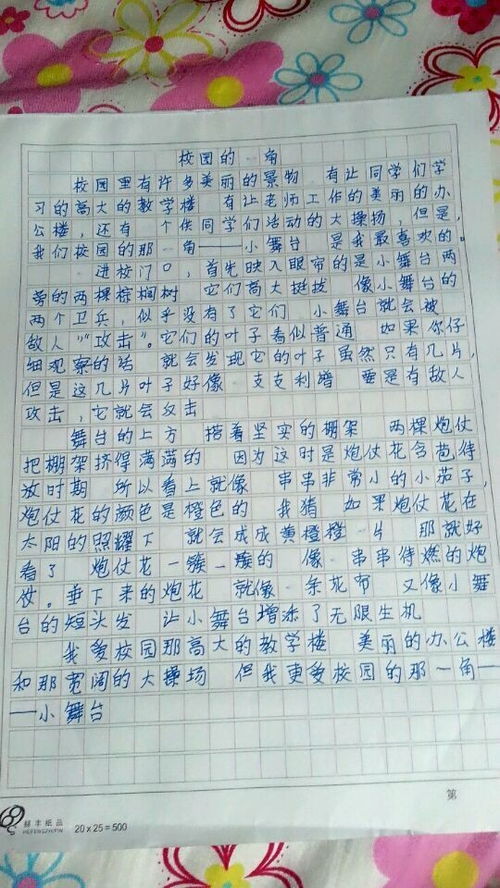 校园的一角
校园里有许多美丽的景物 有让同学们学
习的高大的教学楼 有让老师工作的美丽的办
公楼，还有一个供同学们活动的大操扬，但是，
我们校园的那一角——小舞台 是我最喜欢的。
一进校门口，首先映入眼帘的是小舞台两
旁的两棵棕榈树 它们高大挺拔 像小舞台的
两个卫兵，似乎没有了它们 小舞台就会被
敌人“攻击”。它们的叶子看似普通 如果你仔
细观察的话 就会发现它的叶子虽然只有几片，
但是这几片叶子好像一支支利 要是有敌人
攻击，它就会反击
舞台的上方 搭着坚实的棚架 两棵炮仗
把棚架挤得满满的 因为这时是炮仗花含苞待
放时期 所以看上就像一串串非常小的小茄子，
炮仗花的颜色是橙色的 我猜 如果炮仗花在
太阳的照耀下 就会成成黄橙橙一片 那就好
看了 炮仗花一簇一簇的 像一串串待燃的炮
仗。垂下来的炮花 就像一条花布 又像小舞
台的短头发 让小舞台增添了无限生机
我爱校园那高大的教学楼 美丽的办公楼
和那宽阔的大操场 但我更爱校园的那一角—
—小舞台
第
20 x 25 = 500